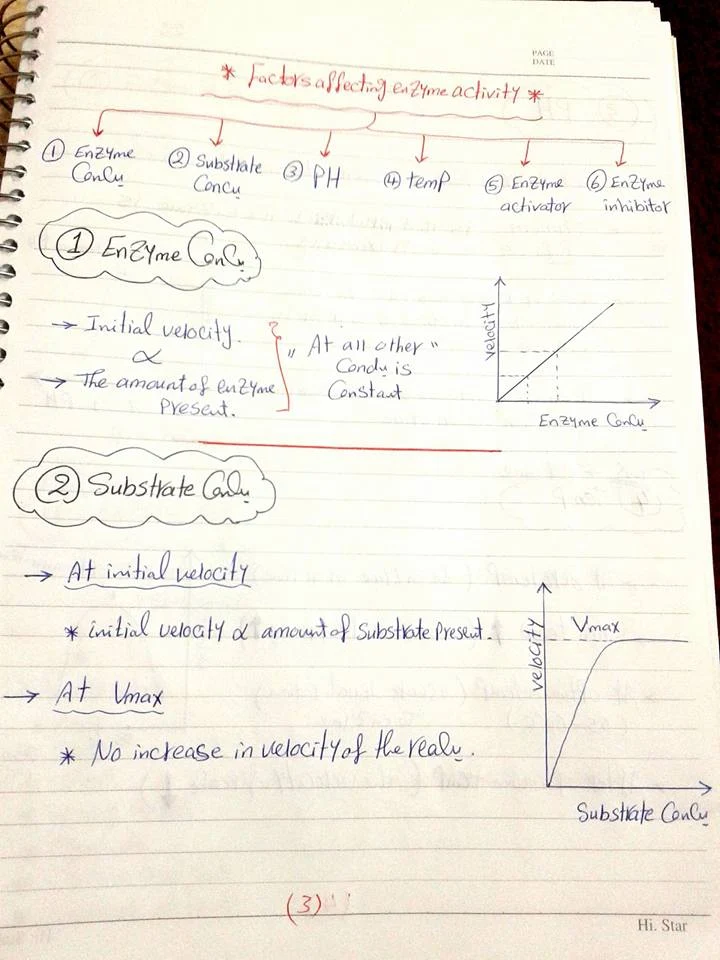 PAGE
DATE
* Factors affecting enzyme activity *
① Enzyme Concu
② Substrate Concu
③ PH
④ temp
⑤ Enzyme activator
⑥ Enzyme inhibitor
① Enzyme Concu
→ Initial velocity.
∝
→ The amount of enzyme
Present.
" At all other "
Condu is
Constant
velocity
Enzyme Concu
② Substrate Concu
→ At initial velocity
* initial velocity ∝ amount of Substrate Present.
→ At Vmax
* No increase in velocity of the reacu.
velocity
Vmax
Substrate Concu
(3)
Hi. Star